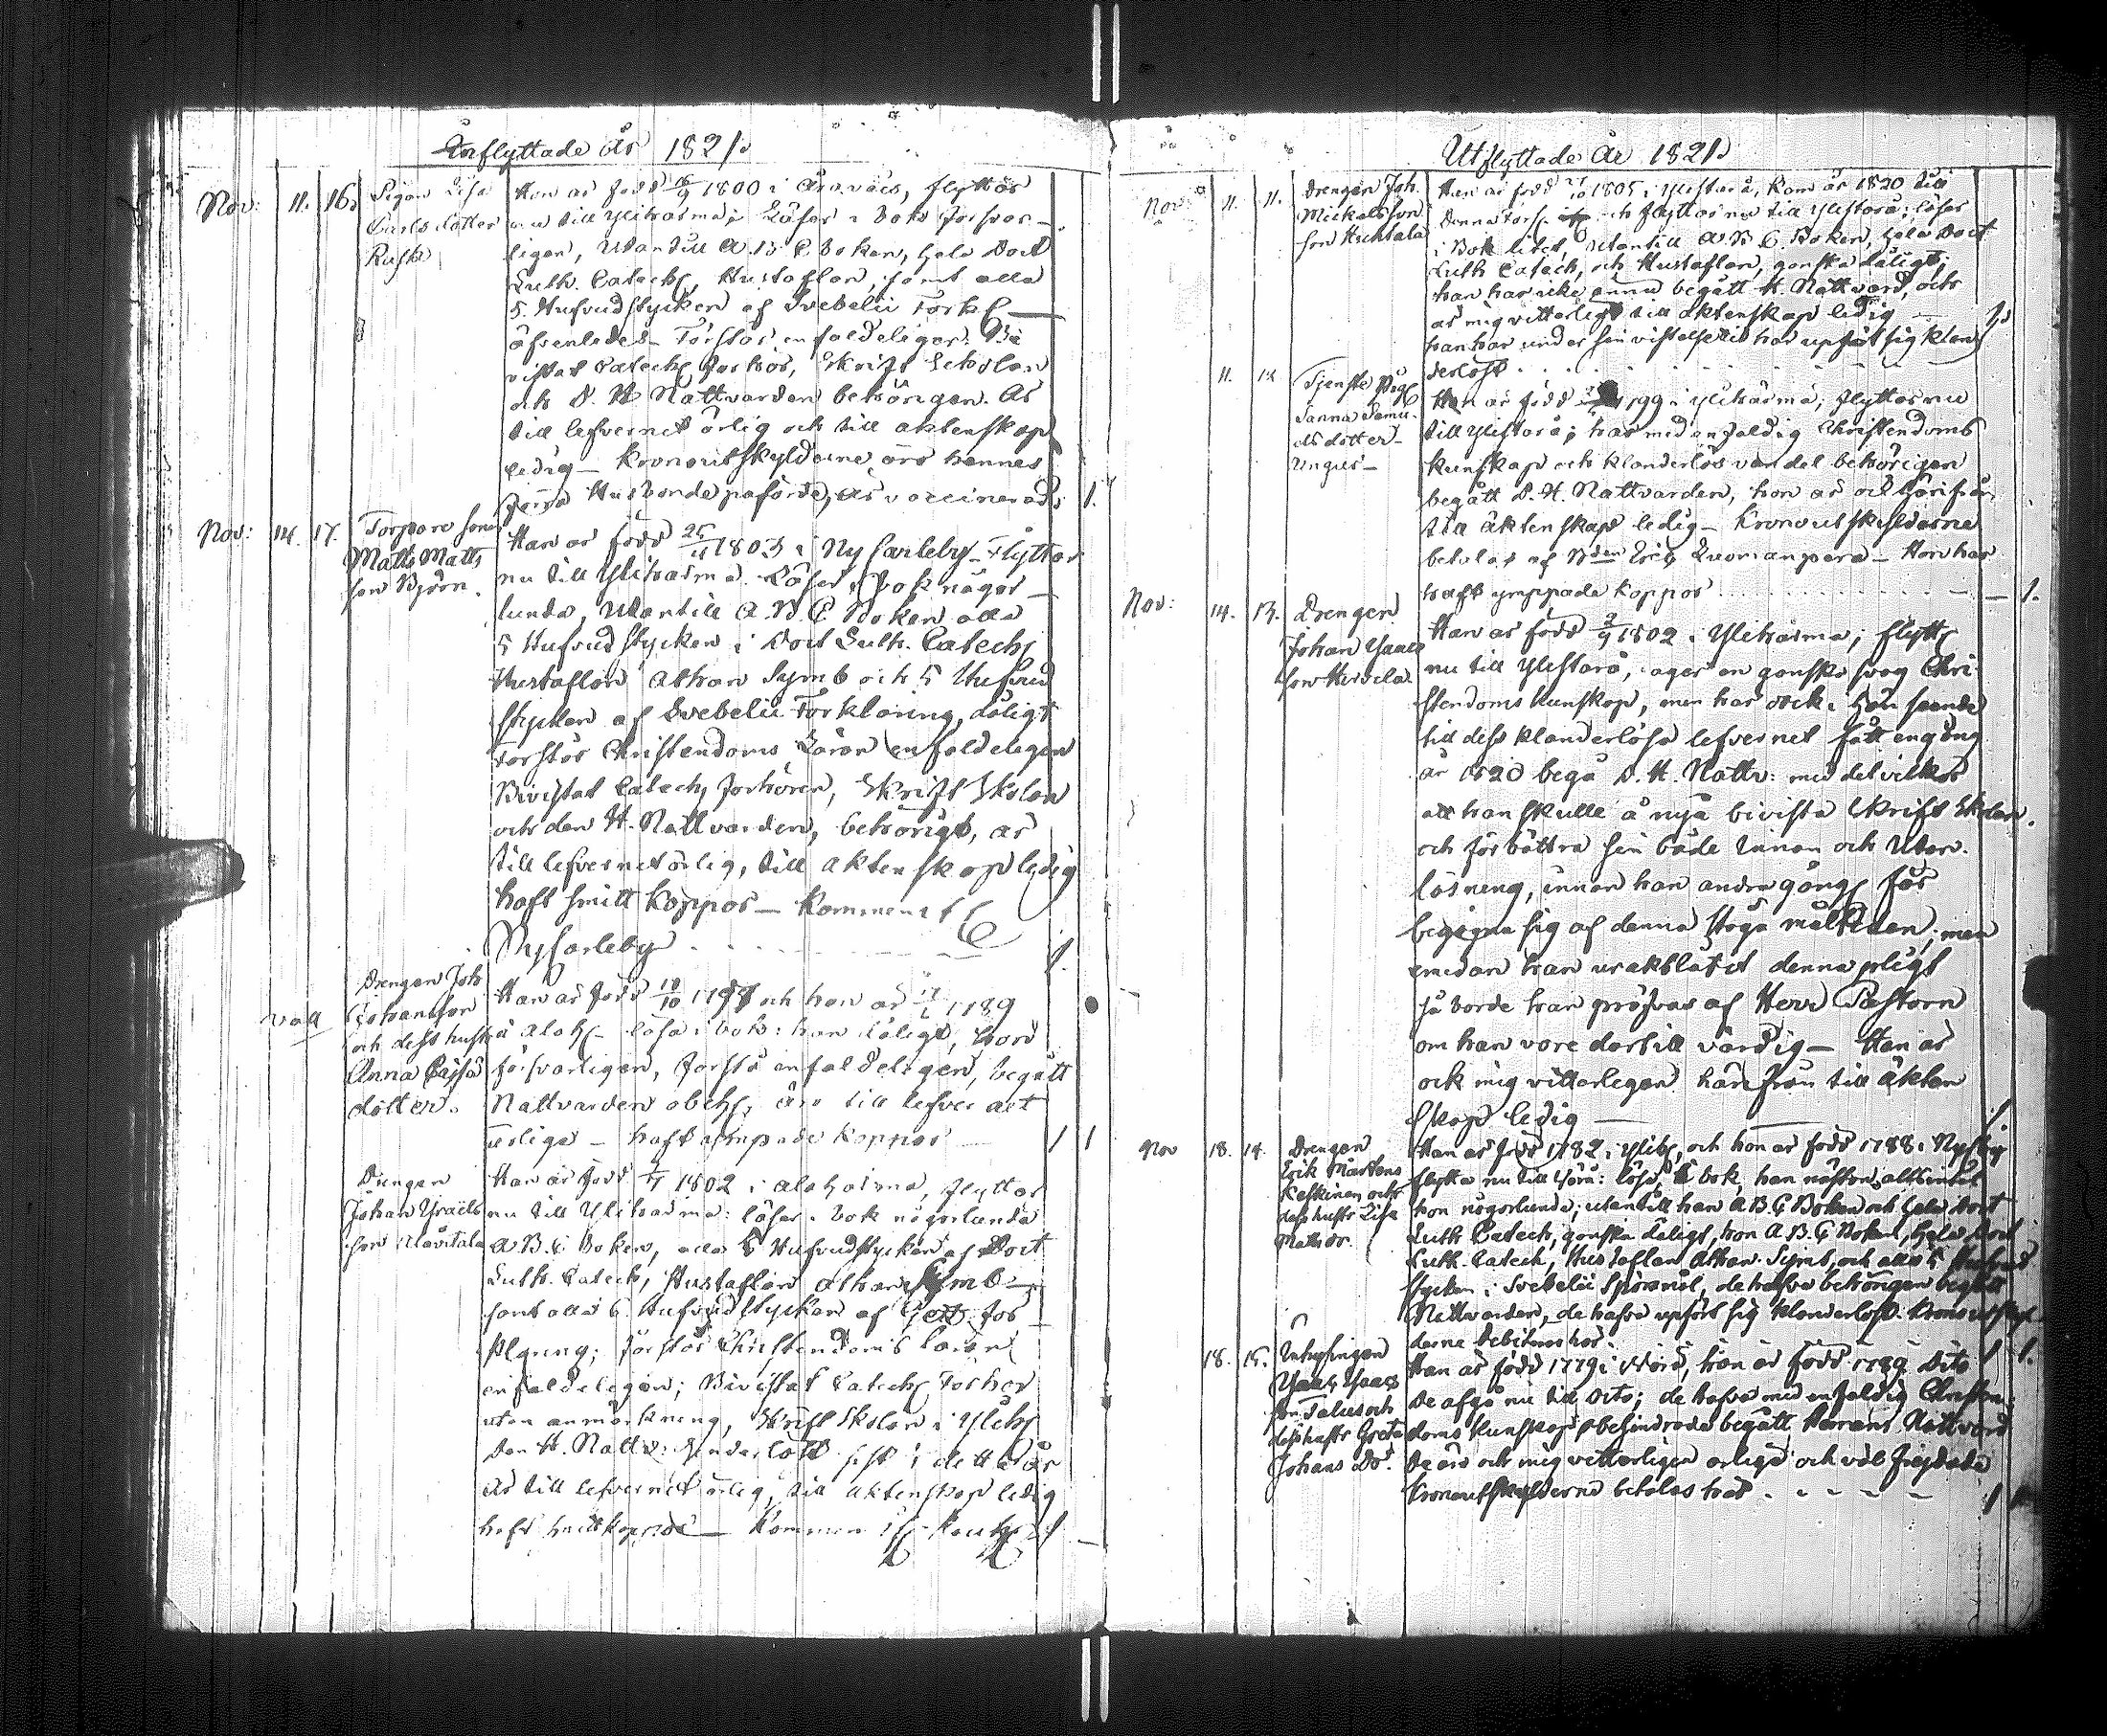 Inflyttade år 1821.
Nov: 11. 16. Pigan Lisa
Carlsdotter
Rusk
Hon är född 1800 i flyttar
nu till Ylihärmä; Läser i bok försvar-
ligen, Utantill A.B.C. boken, hela Doct
Luth. Cateches, Hustaflan, samt alla
5. Hufvudstycken af Svebelii Förk
äfvenledes- Förstår enfaldeligen. Bi
vistat Catech förhör, Skrift Scholan
och D. H. Nattvarden behörigen. Är
till lefvernet ärlig och till äktenskap
ledig- Kronoutskylderne äro hennes
förra Husbonde påförde, är vaccinerad; 1.
Nov: 14. 17. Torpare sonen
Matts Matts
son Björn.
Han är född 25/11 1803 i Ny Carleby- Flyttar
nu till Ylihärmä. Läser i Bok någor-
lunda, Utantill A.B.C. Boken alla
5 Hufvudstycken i Doct Luth. Catech
Hustaflan Athan Symb och 5 Hufvud
stycken af Svebelii Förklaring, dåligt
Förstår Christendoms Läran enfaldeligen
Bivistat Catech förhören, Skrift Skolan
och den H. Nattvarden, behörigt, är
till lefvernet ärlig, till äktenskap ledig
haft smitt koppor- Kommen ifr
Nycarleby 1.
Drengen Joh
Johansson
och dess hustr
Anna Cajsa
dotter.
Han är född 18/10 och hon är 1789
i Alah- läsa i bok: han dåligt, hon
försvarligen, förstå enfaldeligen, begått
Nattvarden äro till lefvernet
ärliga- haft ympade koppor 1 1
Drengen
Johan Israels
son
Han är född 1802 i Alahärmä, flyttar
nu till Ylihärmä: läser i bok någorlunda
A.B.C. Boken, alla 5 Hufvudstycken af Doct
Luth. Catech, Hustaflan Athan Symb-
samt alla 6 Hufvudstycken af för
klaring; förstår Christendoms läran
enfaldeligen; Bivistat Catech Förhör
utan anmärkning, Skrift Skolan i Ylih
Den H. Nattv: sist i detta år
är till lefvernet ärlig, till äktenskap ledig
haft smittkoppor- Kommen ifr 1
Utflyttade År 1821.
Nov: 11. 11. Drengen Joh.
Mickelsson
son Huhtala
Han är född 1805 i Ylistaro, kom år 1820 till
denna församl och flyttar nu till Ylistaro; läser
i Bok litet, Utantill A.B.C. Boken, hela Doct
Luth Catech, och Hustaflan, ganska dåligt;
han har icke ännu begått H. Nattvard, och
är mig vitterligt till äktenskap ledig -
han har under sin vistelsetid här upfört sig klan
derlöst 1.
11. 12. Tjenste Pig
Sanna Samu
elsdotter-
Hon är född 1799 i Ylihärmä; flyttar nu
till Ylistaro; har med enfaldig Christendoms
kunskap och klanderlös vandel behörigen
begått D. H. Nattvarden, hon är ock härifrån
till äktenskap ledig- Kronoutskylderna
betalas af Bden Erik Luomanpera- Hon har
haft ymppade koppor 1.
Nov: 14. 13. Drengen
Johan Isaacs
son
Han är född 1802 i Ylihärmä; flytt
nu till Ylistaro, äger en ganska svag Chri-
stendoms kunskap, men har dock i hän seende
till dess klanderlösa lefvernet fått en gång
år 1820 begå D. H. Nattv: med det vilkor
att han skulle å nyå bivista Skrift Skolan.
och förbättra sin både Innan och Utan.
läsning, innan han andra gång får
begagna sig af denna Höga måltiden; men
emedan han uraktlåtit denna pligt
så borde han pröfvas af Herr Pastorn
om han vore dertill värdig- Han är
ock mig vitterligen härifrån till äkten
skap ledig - 1
Nov 18. 14. Drengen
Erik Mårtens
Keskinen och
dess hustr Lisa
Matsdr.
Han är född 1782 i Ylih, och hon är född 1788 i Nycby
flytta nu till: läsa i bok han nästan altsintet
hon någorlunda; utantill han A.B.C. Boken och hela Doct
Luth Catech, ganska dåligt, hon A.B.C. Boken, hela Doct
Luth. Catech, Hustaflan Athan. Symb, och alla 5 Hufvud
stycken i Svebelii Spörsmål, de hafva behörigen begått
Nattvarden, de hafva upfört sig klanderlöst. Kronoutskyl
derne debiteras här. 1 1.
18. 15. Inhysingen
Isaac Isaacs
son Talus och
dess hustr Greta
Johans Dr.
Han är född 1779 i, hon är född 1789 Dito
De afgå nu till Dito; de hafva med enfaldig Christen-
doms kunskap obehindrade begått Herrans Nattvard
De äro ock mig vitterligen ärliga och väl frejdade
Kronoutskylderne betalas här 1 1